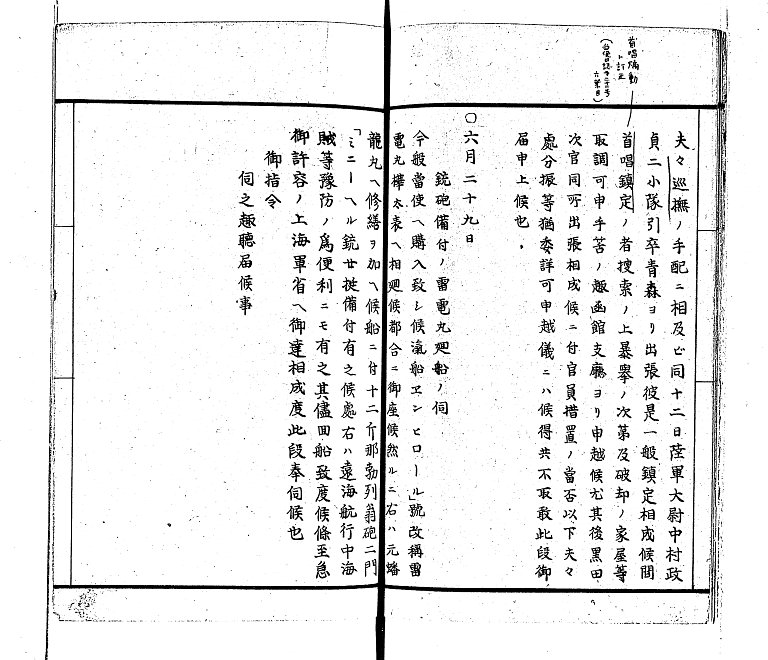 首唱煽動
ト訂正
夫々巡撫ノ手配ニ相及ヒ同十二日陸軍大尉中村政
貞二小隊引卒青森ヨリ出張彼是一般鎮定相成候間
首唱鎮定ノ者捜索ノ上暴挙ノ次第及破却ノ家屋等
取調可申手筈ノ趣函館支廳ヨリ申越候尤其後黒田
次官同所出張相成候ニ付官員措置ノ當否以下夫々
處分振等猶委詳可申越儀ニハ候得共不取敢此段御
届申上候也、
〇六月二十九日
銃砲備付ノ雷電丸廻船ノ伺
今般當使ヘ購入致シ候滊船ヱンヒロール」號改稱雷
電丸樺太表ヘ相廻候都合ニ御座候然ルニ右ハ元蟠
龍丸ヘ修繕ヲ加ヘ候船ニ付十二斤那勃列翁砲二門
「ミニーヘル銃廿挺備付有之候處右ハ遠海航行中海
賊等豫防ノ爲便利ニモ有之其儘回船致度候條至急
御許容ノ上海軍省ヘ御達相成度此段奉伺候也
御指令
伺之趣聽届候事